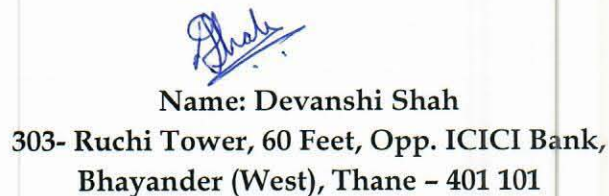 DShah
Name: Devanshi Shah
303- Ruchi Tower, 60 Feet, Opp. ICICI Bank,
Bhayander (West), Thane – 401 101